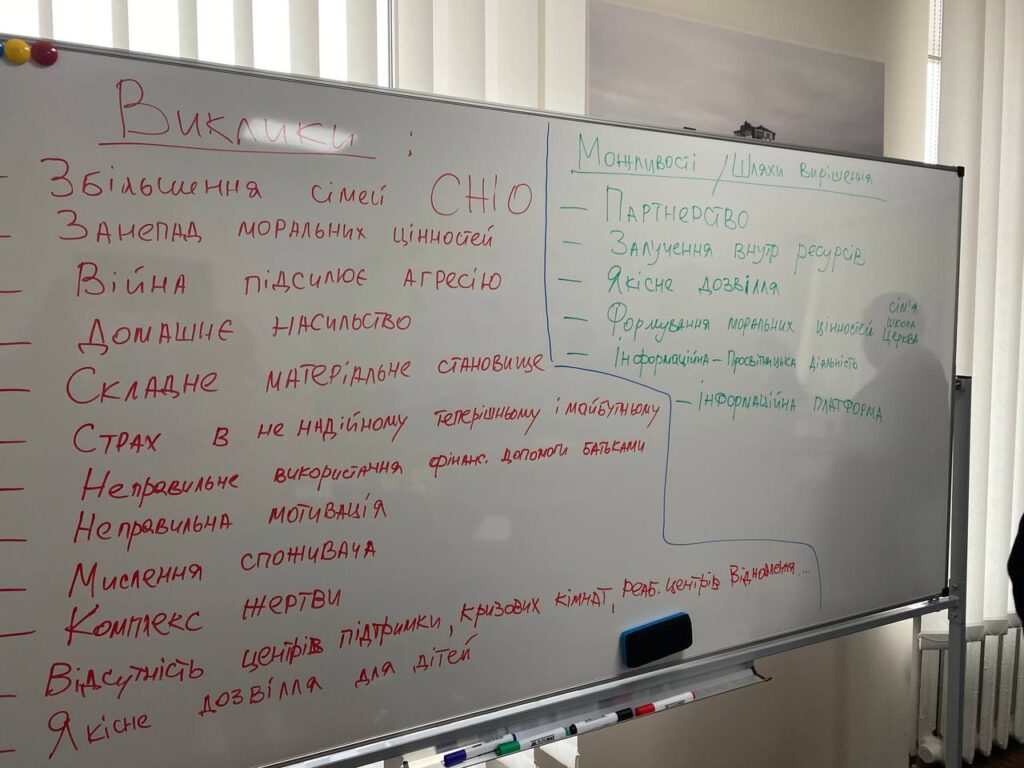 Виклики :
- Збільшення сімей СНІО
- Занепад моральних цінностей
- Війна підсилює агресію
- Домашнє насильство
- Складне матеріальне становище
- Страх в не надійному теперішньому і майбутньому
- Неправильне використання фінанс. допомоги батьками
- Неправильна мотивація
- Мислення споживача
- Комплекс жертви
- Відсутність центрів підтримки, кризових кімнат, реаб. центрів Відновлення...
- Якісне дозвілля для дітей
Можливості / Шляхи вирішення
- Партнерство
- Залучення внутр ресурсів
- Якісне дозвілля
- Формування моральних цінностей
сім'я
школа
Церква
- Інформаційна - Просвітницька діяльність
- Інформаційна платформа